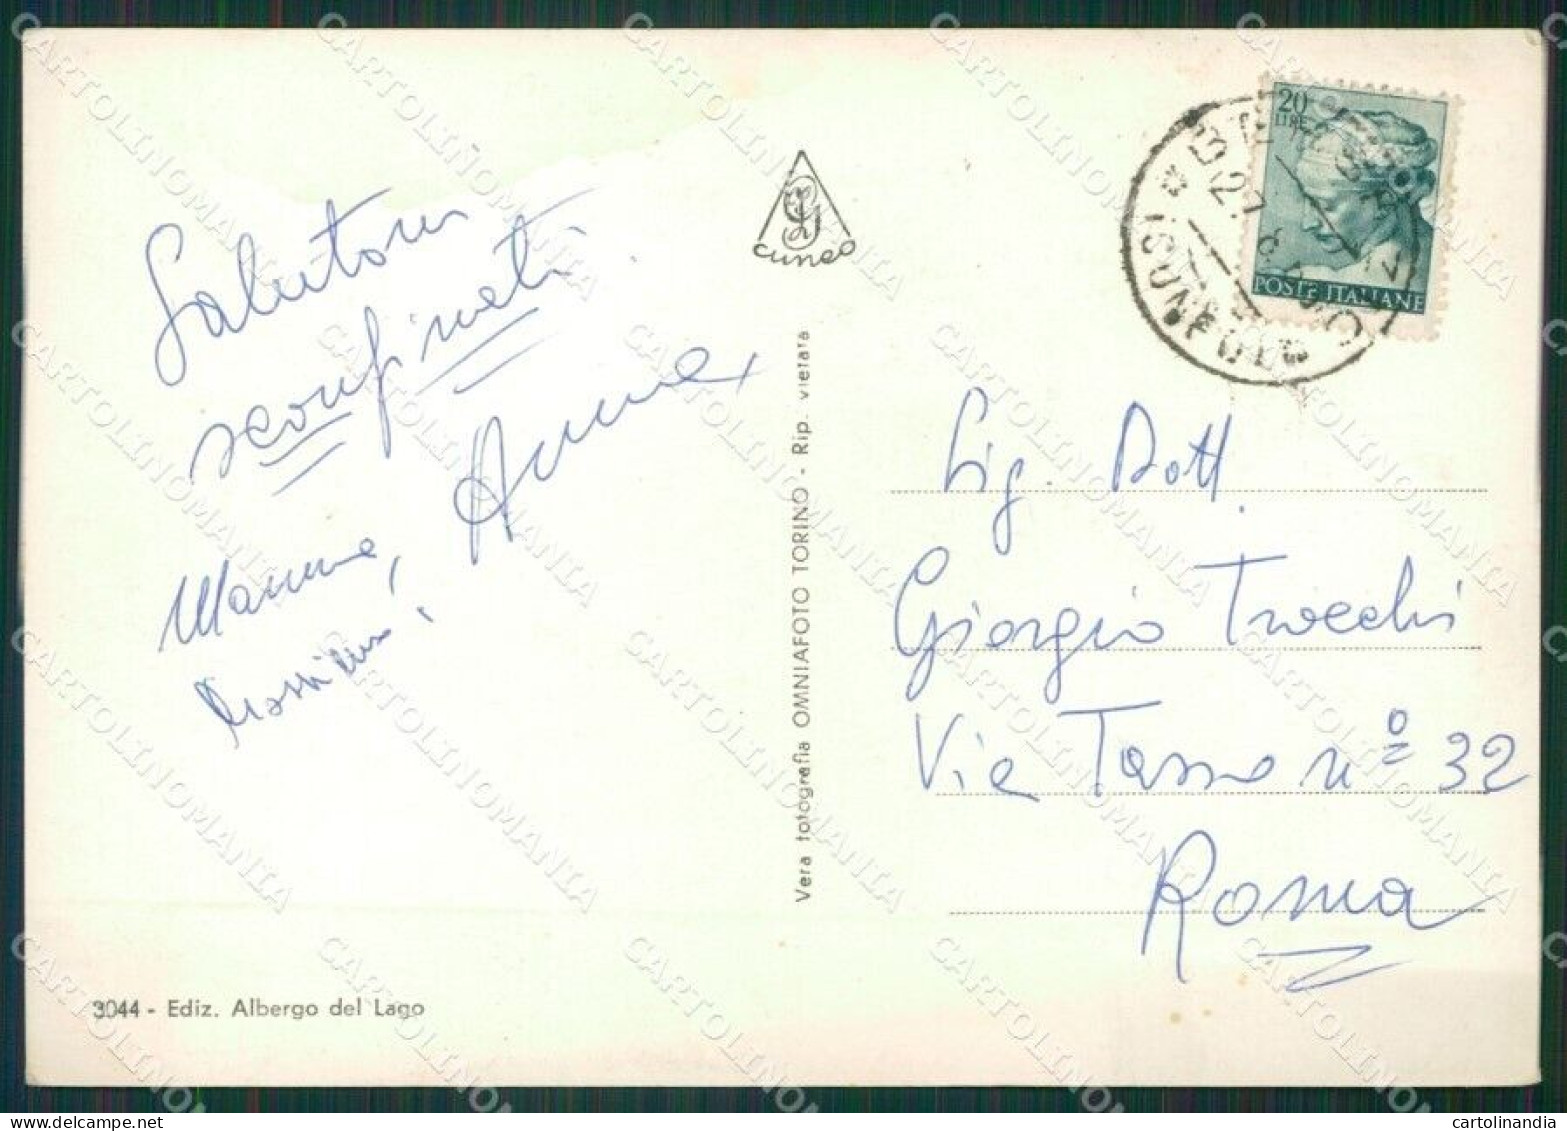 sconfinati
Mamma,
cuneo
Vera fotografia OMNIAFOTO TORINO - Rip. vietata
20
LIRE
POSTE ITALIANE
Sig. Dott.
Giorgio Trocchi
Via Tasso nº 32
Roma
3044 - Ediz. Albergo del Lago
CARTOLINOMANIA
cartolinandia